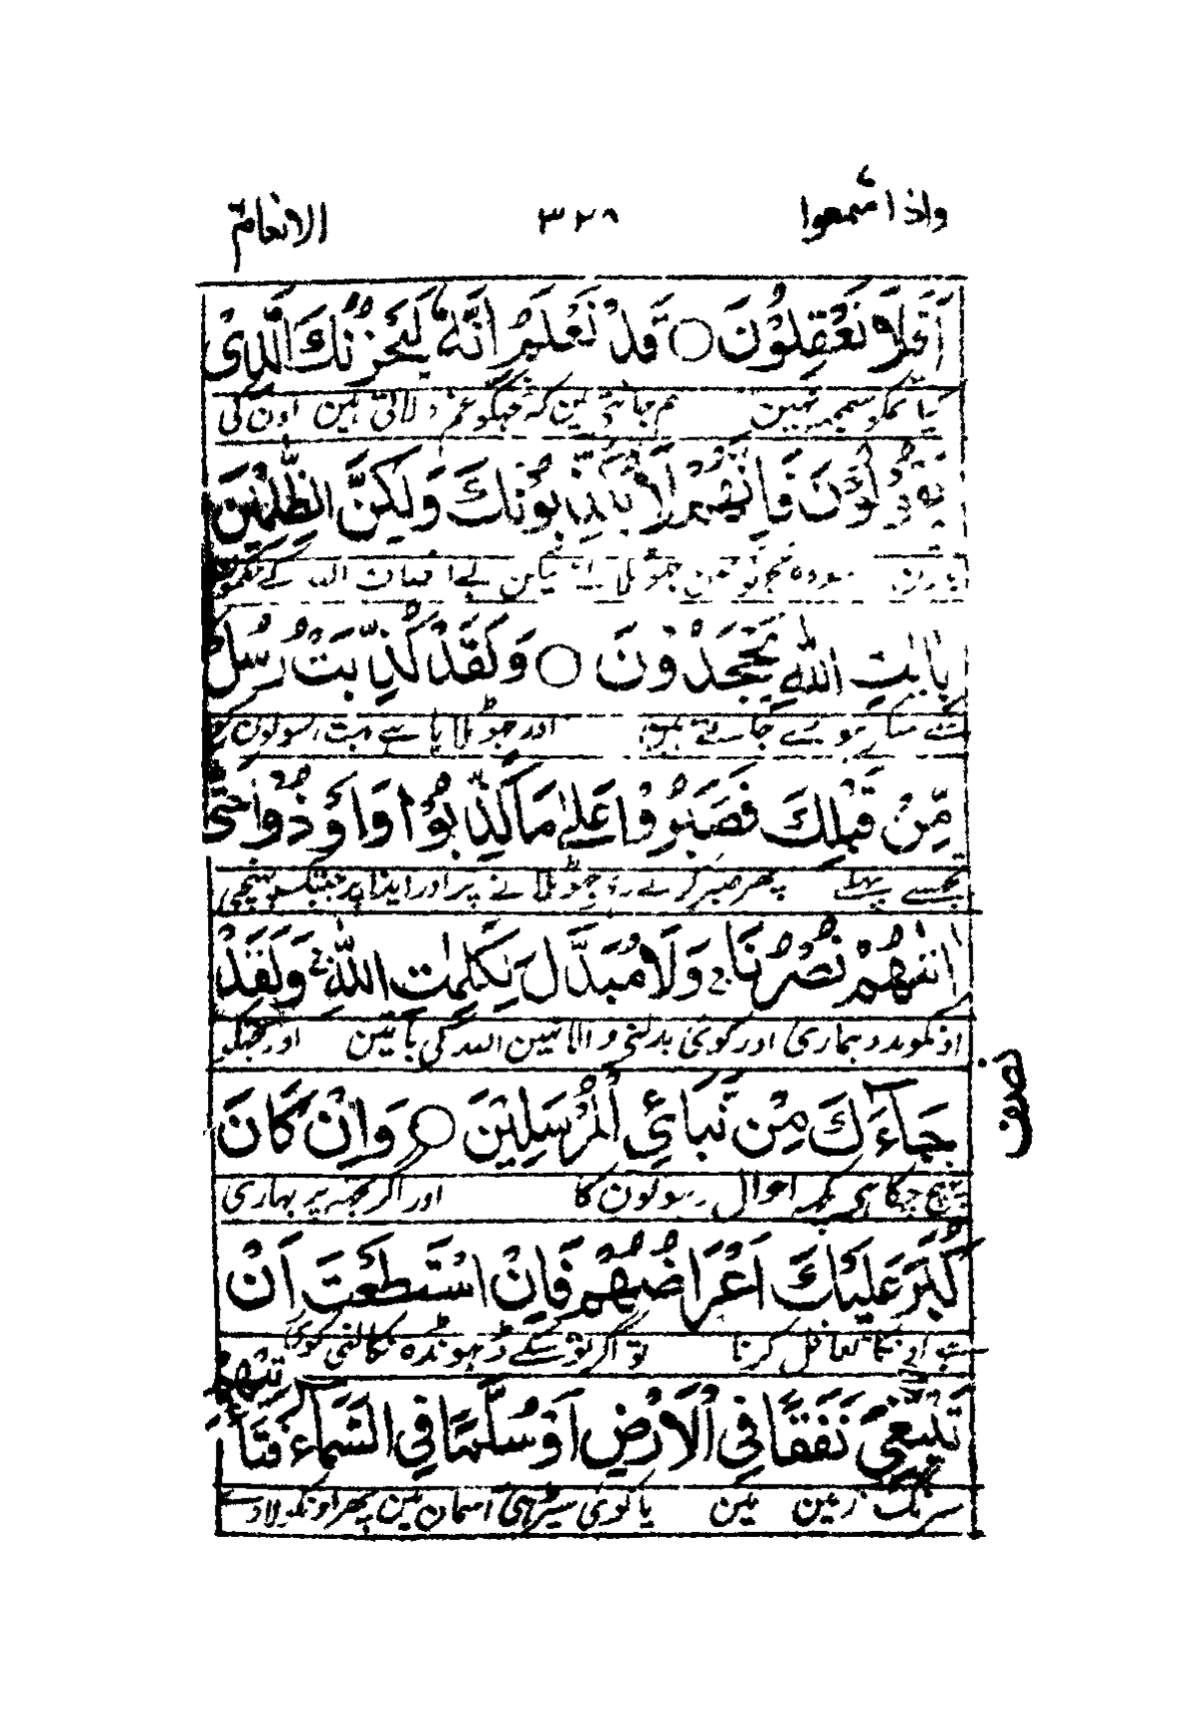 واذا سمعوا ٣٢٨ الانعام
اَفَلَا تَعْقِلُوْنَ ○ قَدْ نَعْلَمُ اِنَّهٗ لَيَحْزُنُكَ الَّذِىْ
کیا تمکو سمجھ نہین ہم جانتے ہین کہ تجہکو غم دلاتی ہین اون کی
يَقُوْلُوْنَ فَاِنَّهُمْ لَا يُكَذِّبُوْنَكَ وَلٰكِنَّ الظّٰلِمِيْنَ
سو وہ تجکو نہین جھوٹلاتے لیکن بے انصاف اللہ کے
بِاٰيٰتِ اللّٰهِ يَجْحَدُوْنَ ○ وَلَقَدْ كُذِّبَتْ رُسُلٌ
ہوے جاتے ہین اور جھوٹلایا ہے بہت رسولون کو
مِّنْ قَبْلِكَ فَصَبَرُوْا عَلٰے مَا كُذِّبُوْا وَاُوْذُوْا حَتّٰى
تجسے پہلے پھر صبر کرتے رہے جھوٹلانے پر اور ایذا پر جبتک پہنچی
اَتٰىهُمْ نَصْرُنَا ج وَلَا مُبَدِّلَ لِكَلِمٰتِ اللّٰهِ ج وَلَقَدْ
اونکو مدد ہماری اور کوئی بدلنے والا نہین اللہ کی باتین اور تجہکو
نصف
جَآءَكَ مِنْ نَّبَائِ الْمُرْسَلِيْنَ ○ وَاِنْ كَانَ
پہنچ چکا ہی کچہ احوال رسولون کا اور اگر تجہ پر بہاری
كَبُرَ عَلَيْكَ اِعْرَاضُهُمْ فَاِنْ اسْتَطَعْتَ اَنْ
ہے انکا تغافل کرنا تو اگر تو سکے ڈہونڈہ نکالنی کوئی
تَبْتَغِىَ نَفَقًا فِى الْاَرْضِ اَوْ سُلَّمًا فِى السَّمَآءِ فَتَاْتِيَهُمْ
سرنگ زمین مین یا کوئی سیڑہی آسمان مین پھر اونکو لادے